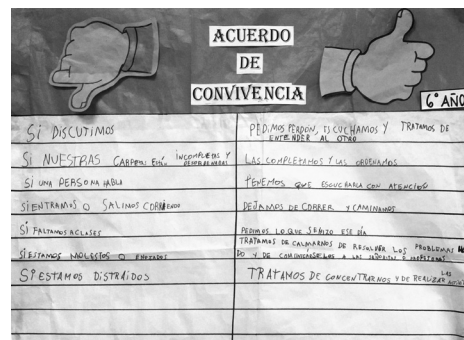 ACUERDO
DE
CONVIVENCIA
6° AÑO
SI DISCUTIMOS
PEDIMOS PERDÓN, ESCUCHAMOS Y TRATAMOS DE
ENTENDER AL OTRO
SI NUESTRAS CARPETAS ESTÁN INCOMPLETAS Y
DESORDENADAS
LAS COMPLETAMOS Y LAS ORDENAMOS
SI UNA PERSONA HABLA
TENEMOS QUE ESCUCHARLA CON ATENCIÓN
SI ENTRAMOS O SALIMOS CORRIENDO
DEJAMOS DE CORRER Y CAMINAMOS
SI FALTAMOS A CLASES
PEDIMOS LO QUE SE HIZO ESE DÍA
SI ESTAMOS MOLESTOS O ENOJADOS
TRATAMOS DE CALMARNOS DE RESOLVER LOS PROBLEMAS
DO Y DE COMUNICÁRSELOS A LAS SEÑORITAS O PROFESORAS
SI ESTAMOS DISTRAIDOS
TRATAMOS DE CONCENTRARNOS Y DE REALIZAR LAS